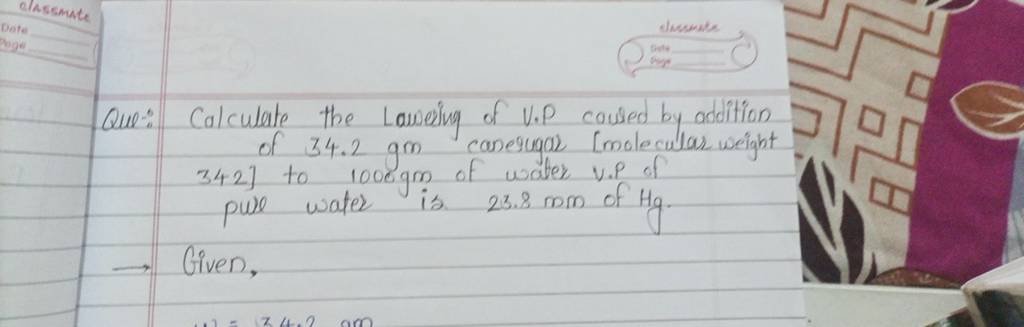 classmate
Date
Page
classmate
Date
Page
Que-: Calculate the Lowering of V.P caused by addition
of 34.2 gm canesugar [molecular weight
342] to 1000gm of water V.P of
pure water is 23.8 mm of Hg.
→ Given,
= 34.2 gm